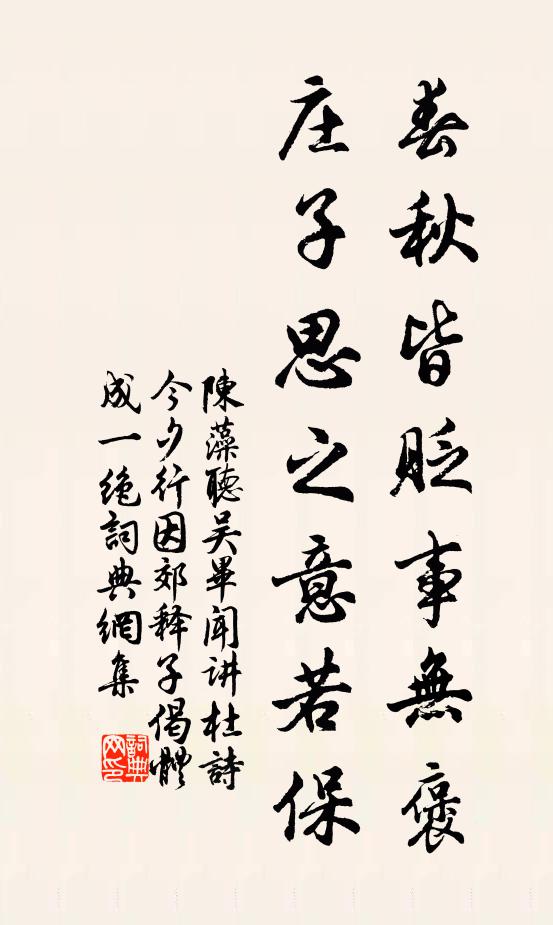 春秋皆貶事無褒
庄子思之意若保
陳藻聽吴畢闻讲杜詩
今夕行因郊释子偈體
成一绝詞典網集
詞典网印